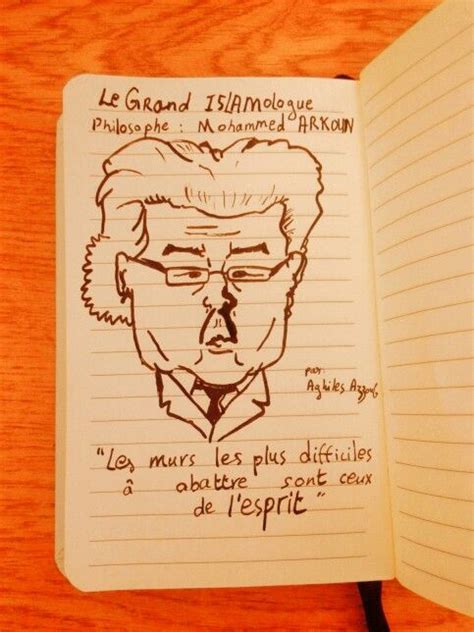 Le Grand ISLAMologue
Philosophe : Mohammed ARKOUN
par:
Aghiles Azzoug
"Les murs les plus difficiles
à abattre sont ceux
de l'esprit"